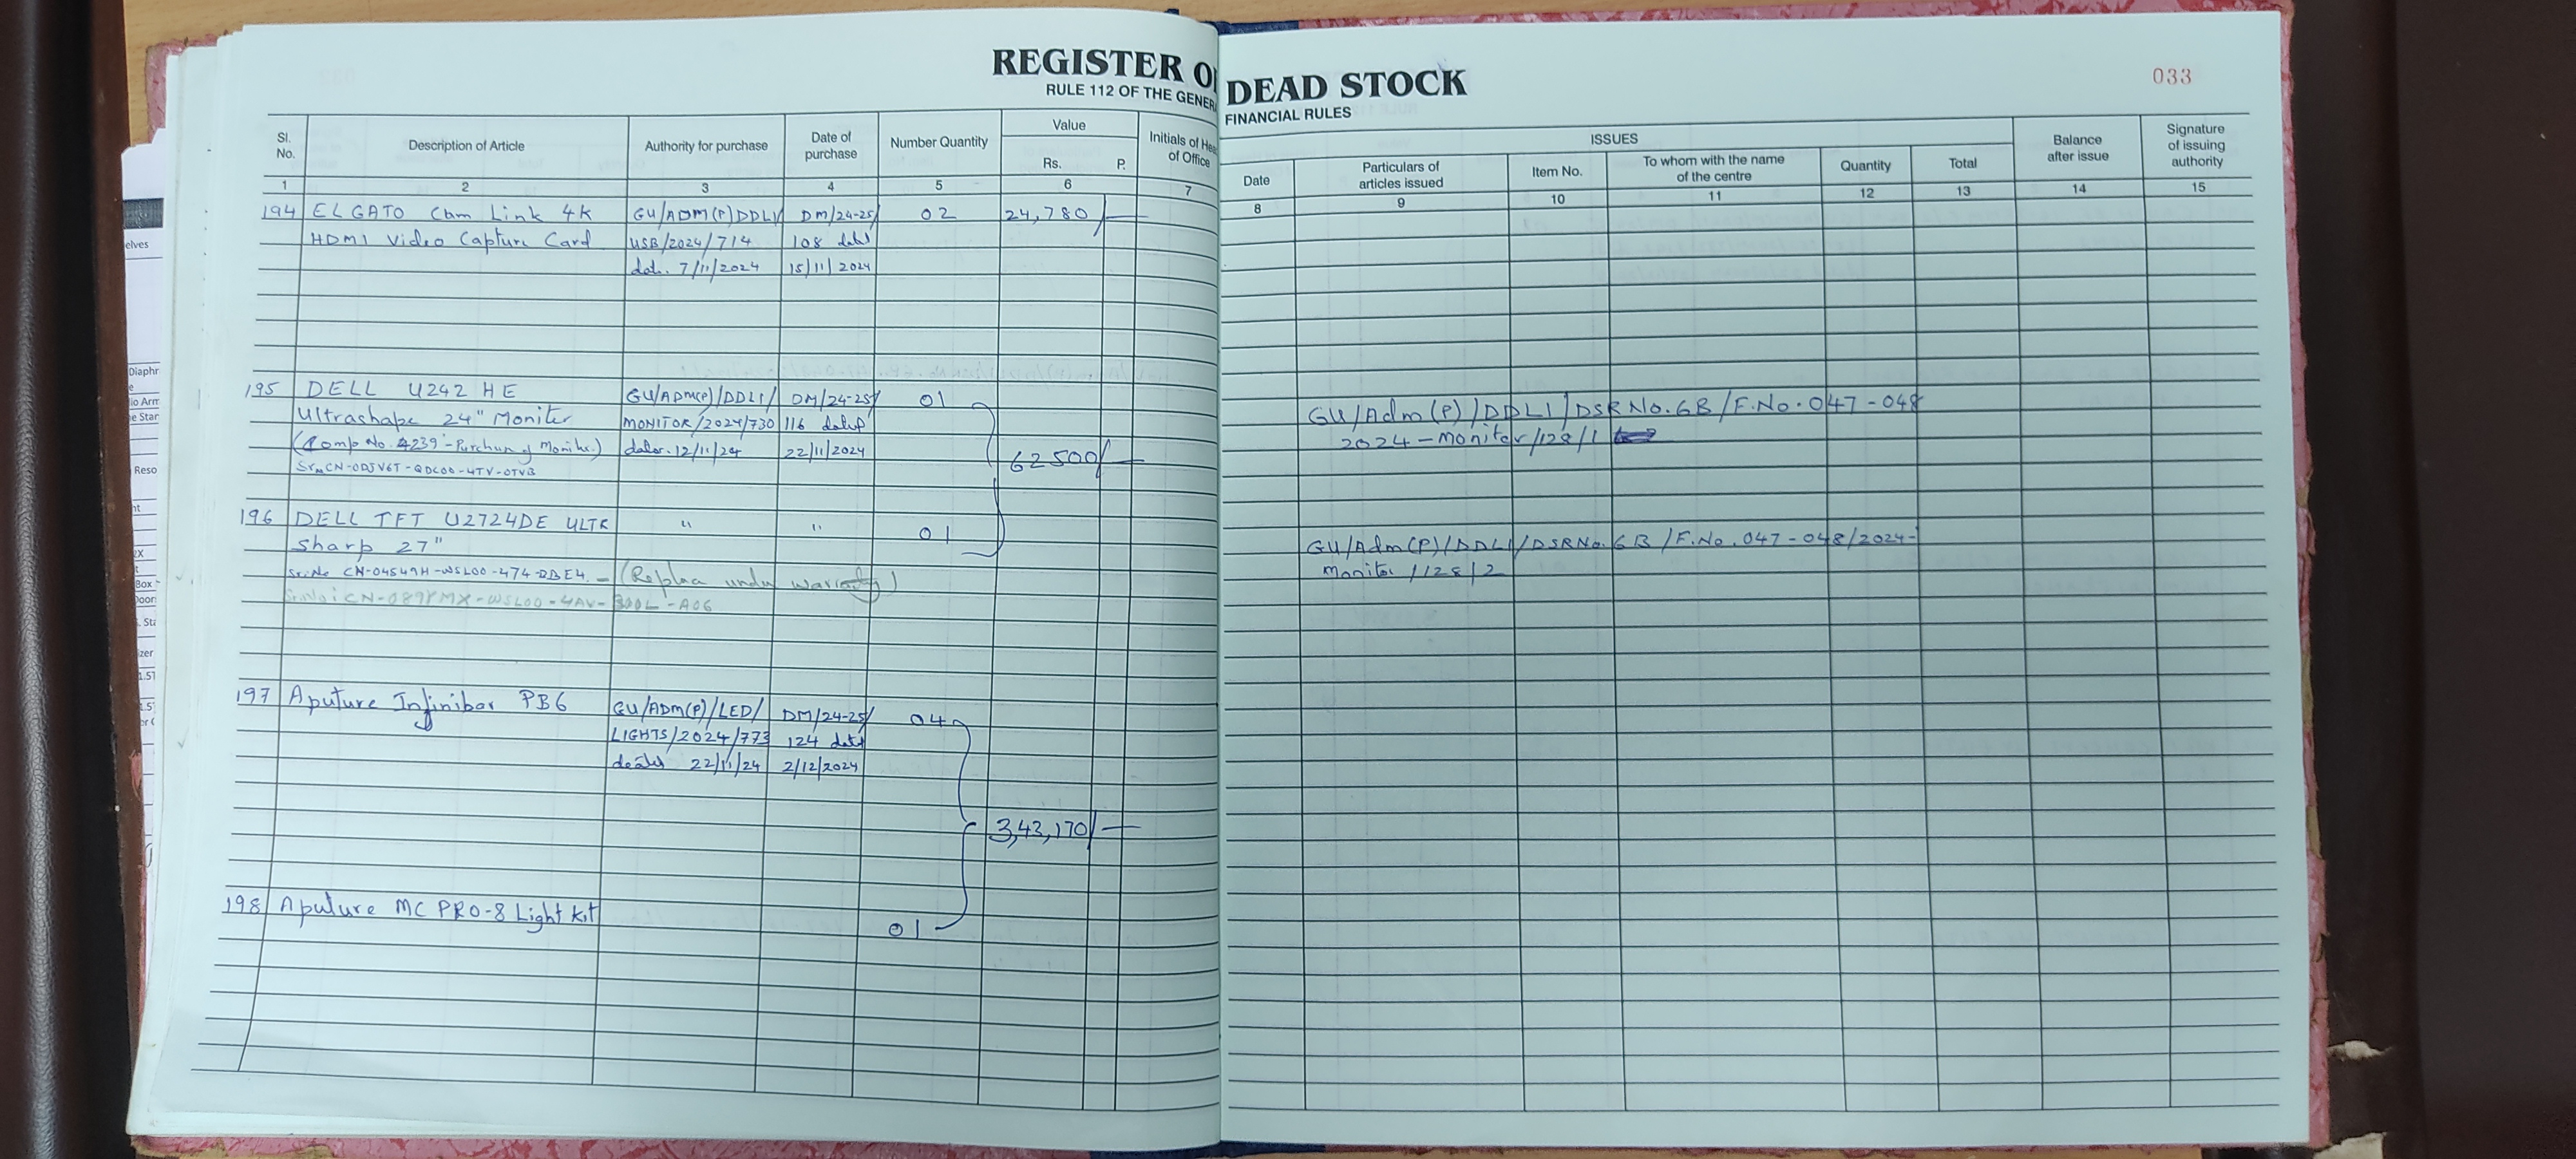 REGISTER OF DEAD STOCK
RULE 112 OF THE GENERAL FINANCIAL RULES
033
Sl. No.
Description of Article
Authority for purchase
Date of purchase
Number Quantity
Value
Rs.
P.
Initials of Head of Office
ISSUES
Date
Particulars of articles issued
Item No.
To whom with the name of the centre
Quantity
Total
Balance after issue
Signature of issuing authority
1 2 3 4 5 6 7 8 9 10 11 12 13 14 15
194 ELGATO Cam Link 4K GU/ADM(P)DDLI/ DM/24-25/ 02 24,780/-
HDMI Video Capture Card USB/2024/714 108 dated
dat. 7/11/2024 15/11/2024
195 DELL U242 HE GU/ADM(P)/DDLI/ DM/24-25/ 01
Ultrashape 24" Moniter MONITOR/2024/730 116 dated
(Comp No. 4239 - Purchase of Monitor.) dated. 12/11/24 22/11/2024
62500/-
Sr No CN-0DJV6T-QDC00-4TV-0TVB
GU/Adm(P)/DDLI/DSR No. 6B/F.No. 047-048
2024-Monitor/128/1
196 DELL TFT U2724DE ULTR " " 01
Sharp 27"
Sr.No CN-04549H-WSL00-474-DBE4. - (Replace under warranty)
CN-0898MX-WSL00-4AV-300L-A06
GU/Adm(P)/DDLI/DSR No. 6B/F.No. 047-048/2024-
Monitor/128/2
197 Aputure Infinibar PB6 GU/ADM(P)/LED/ DM/24-25/ 04
LIGHTS/2024/773 124 dated
22/11/24 2/12/2024
3,43,170/-
198 Aputure MC PRO-8 Light Kit
01
elves
Diaphr
e
io Arm
e Star
Reso
Box
oor
zer
1.5T